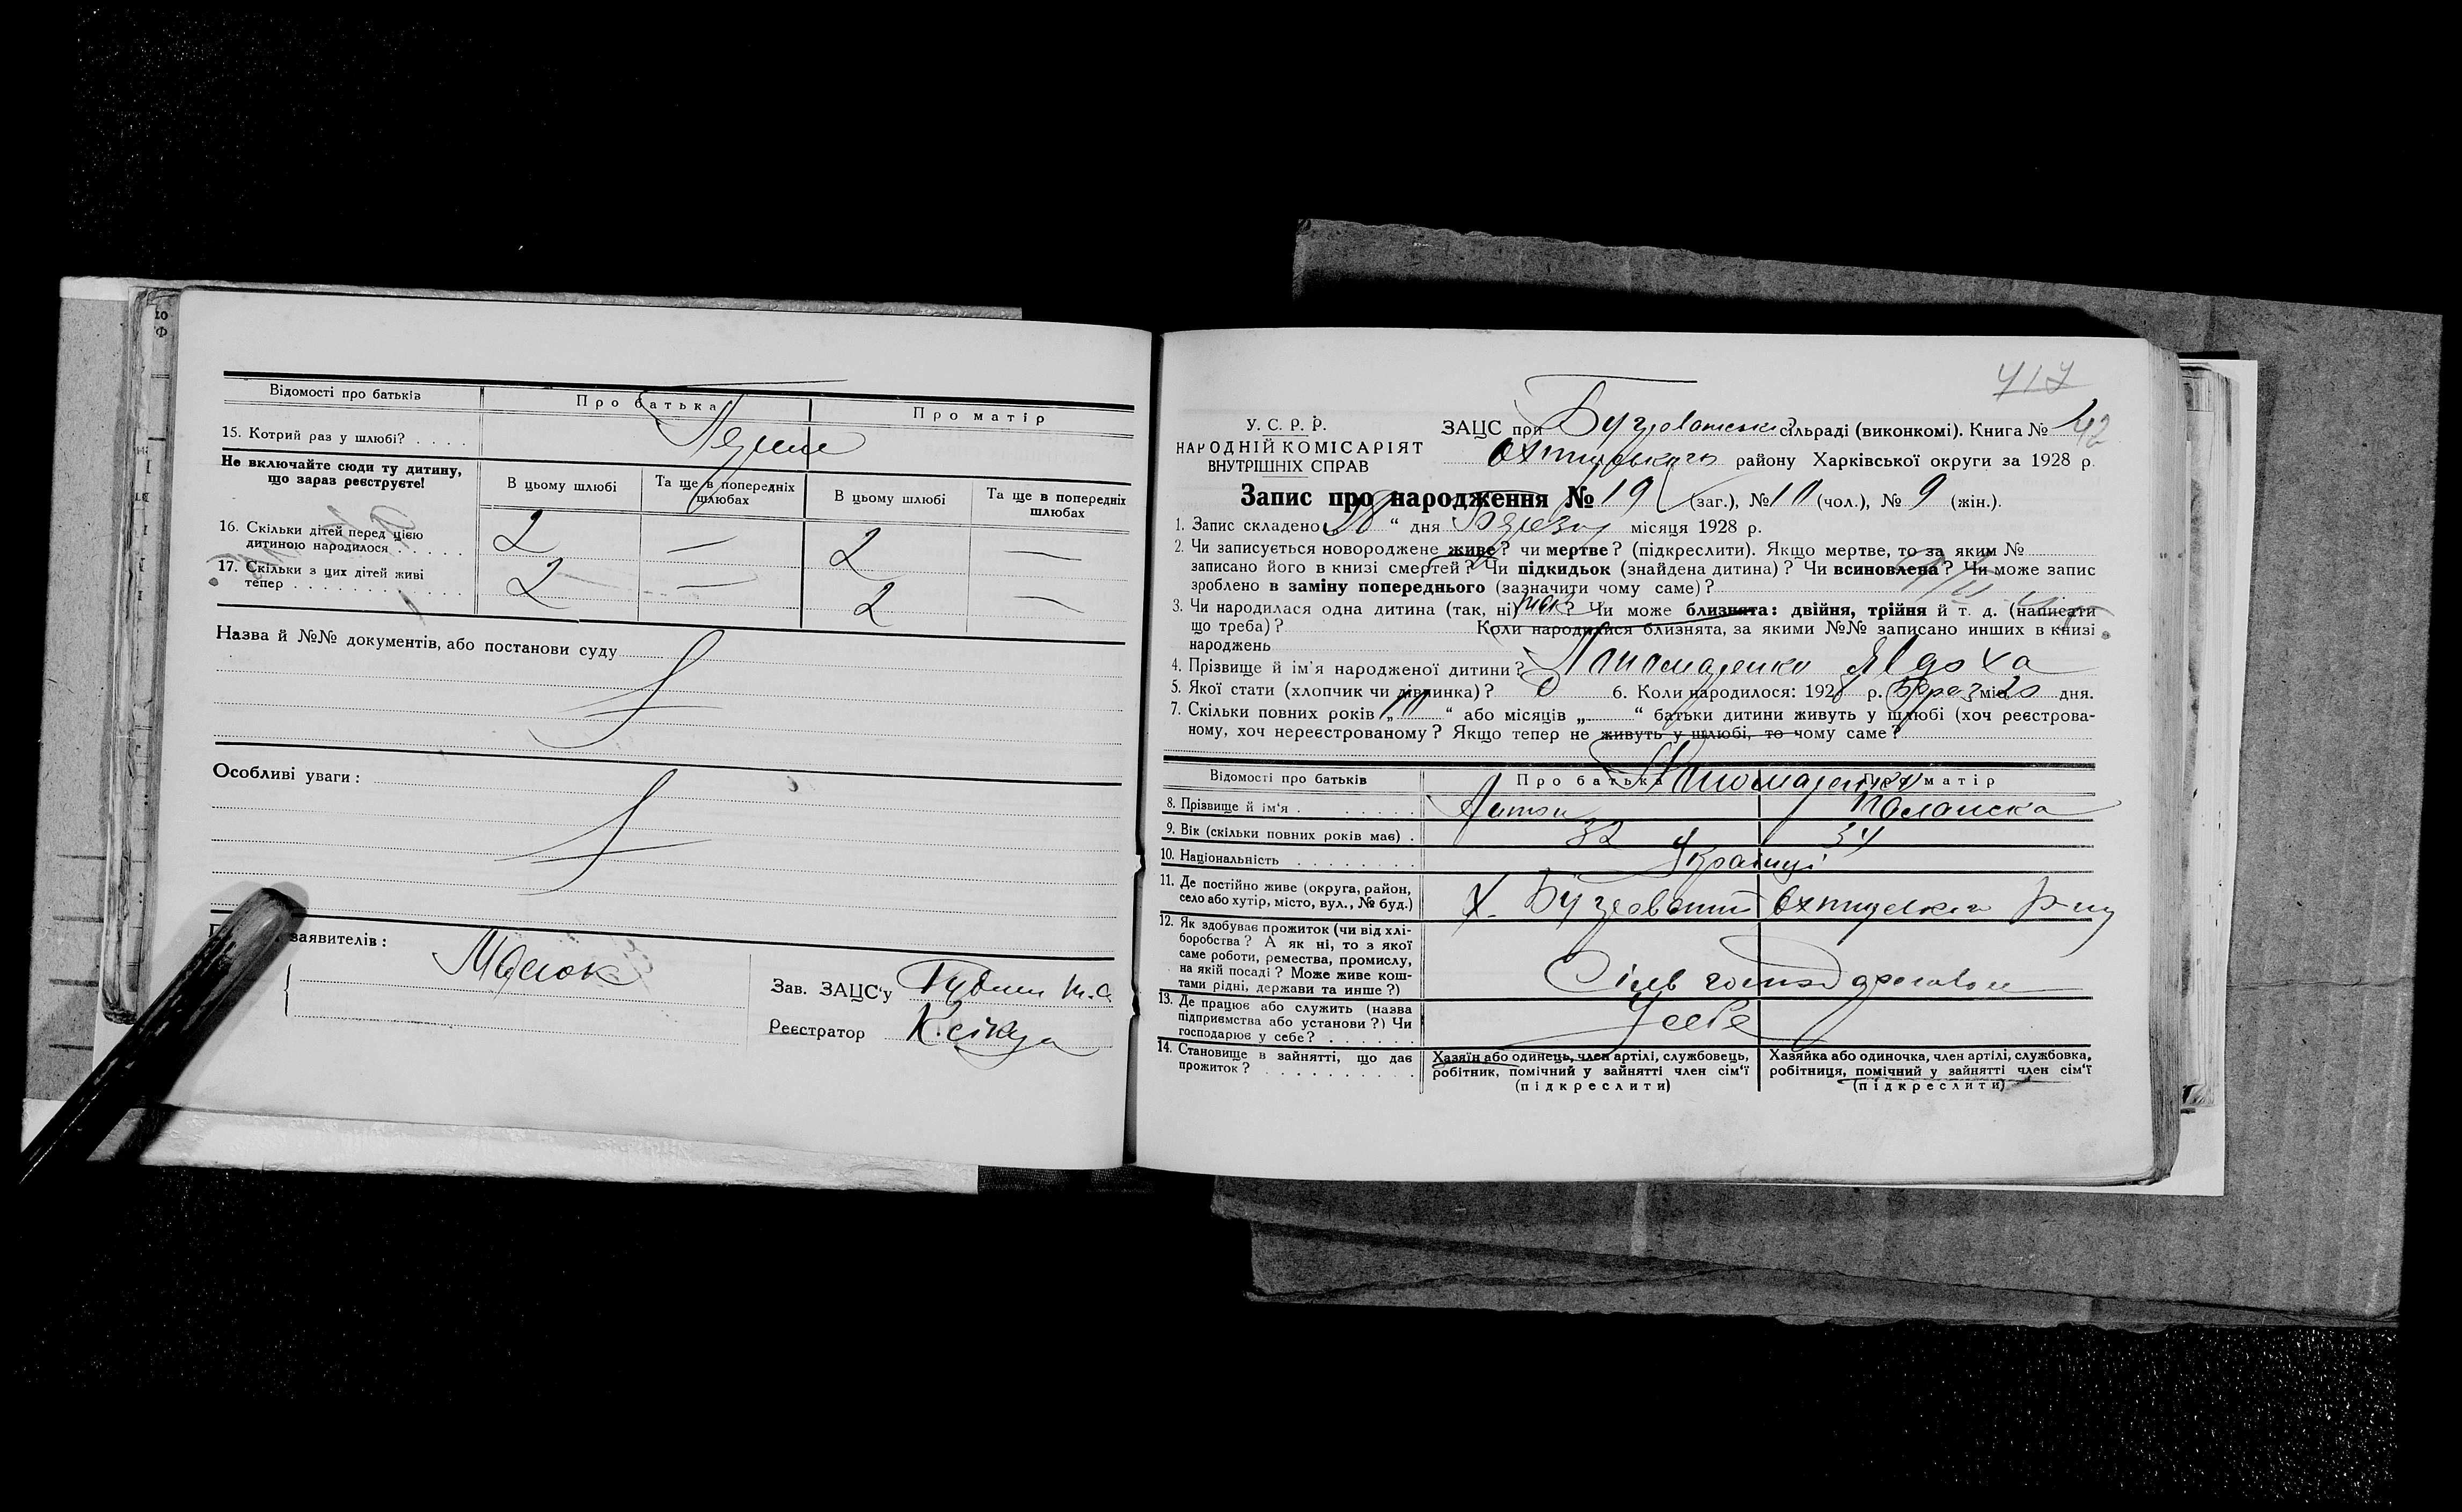 Відомості про батьків
Про батька
Про матір
15. Котрий раз у шлюбі? . . . .
Не включайте сюди ту дитину,
що зараз реєструєте!
В цьому шлюбі
Та ще в попередніх
шлюбах
В цьому шлюбі
Та ще в попередніх
шлюбах
16. Скільки дітей перед цією
дитиною народилося . . . . .
2 — 2 —
17. Скільки з цих дітей живі
тепер . . . . . . . . . . . .
2 — 2 —
Назва й №№ документів, або постанови суду
Особливі уваги :
заявителів :
Зав. ЗАЦС'у
Реєстратор
717
У. С. Р. Р.
НАРОДНІЙ КОМІСАРІЯТ
ВНУТРІШНІХ СПРАВ
ЗАЦС при сільраді (виконкомі). Книга № 42
району Харківської округи за 1928 р.
Запис про народження № 19 (заг.), № 10 (чол.), № 9 (жін.).
1. Запис складено 28 “ дня Березня місяця 1928 р.
2. Чи записується новороджене живе? чи мертве? (підкреслити). Якщо мертве, то за яким №
записано його в книзі смертей? Чи підкидьок (знайдена дитина)? Чи всиновлена? Чи може запис
зроблено в заміну попереднього (зазначити чому саме)?
3. Чи народилася одна дитина (так, ні) так? Чи може близнята: двійня, трійня й т. д. (написати
що треба)? Коли народилися близнята, за якими №№ записано инших в книзі
народжень
4. Прізвище й ім'я народженої дитини? Пономаренко Явдоха
5. Якої стати (хлопчик чи дівчинка)? д 6. Коли народилося: 1928 р. Берез міс. 20 дня.
7. Скільки повних років „ 10 “ або місяців „ “ батьки дитини живуть у шлюбі (хоч реєстрова-
ному, хоч нереєстрованому? Якщо тепер не живуть у шлюбі, то чому саме?
Відомості про батьків
Про батька
Про матір
Пономаренки
8. Прізвище й ім'я . . . . . . .
Антон
Палажка
9. Вік (скільки повних років має) .
32
34
10. Національність . . . . . . . .
Українці
11. Де постійно живе (округа, район,
село або хутір, місто, вул., № буд.)
х.
12. Як здобуває прожиток (чи від хлі-
боробства? А як ні, то з якої
саме роботи, ремества, промислу,
на якій посаді? Може живе кош-
тами рідні, держави та инше?)
13. Де працює або служить (назва
підприємства або установи?) Чи
господарює у себе? . . . . . .
У себе
14. Становище в зайнятті, що дає
прожиток? . . . . . . . . . .
Хазяїн або одинець, член артілі, службовець,
робітник, помічний у зайнятті член сім'ї
(підкреслити)
Хазяйка або одиночка, член артілі, службовка,
робітниця, помічний у зайнятті член сім'ї
(підкреслити)